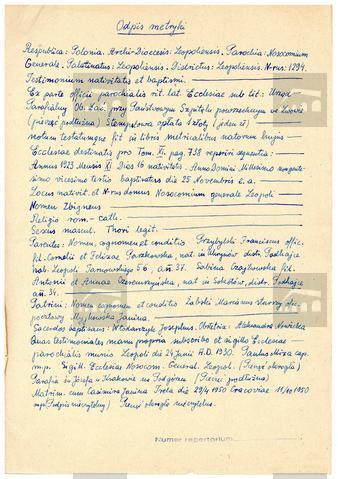 Odpis metryki
Respublica: Polonia. Archi-Dioecesis: Leopoliensis. Parochia: Nosocomium
Generale. Palatinatus: Leopoliensis. Districtus: Leopoliensis. N-rus: 1294.
Testimonium nativitatis et baptismi.
Ex parte officii parochialis rit. lat. Ecclesiae sub tit: Urząd
Parafialny Ob. Łac. przy Państwowym Szpitalu powszechnym we Lwowie
(pieczęć podłużna) Stemplowa opłata 1 złoty (jeden zł)
notum testatumque fit in libris metricalibus natorum hujus
Ecclesiae destinatis pro Tom. XI. pag. 738 reperiri sequentia:
Annus 1923 Mensis XI Dies 16 nativitatis. Anno Domini Millesimo nongente-
simo vicesimo tertio baptisatus die 25 Novembris e.a.
Locus nativit. et N-rus domus Nosocomium generale Leopoli
Nomen Zbigneus
Religio rom.-cath.
Sexus mascul. Thori legit.
Parentes: Nomen, cognomen et conditio Przybylski Franciscus offic.
fil. Cornelii et Felixae Paszkowska, nat. in distr. Podhajce
hab. Leopoli Tarnowskiego 56, an. 37. Sabina fil.
Antonii et Annae nat. in distr. Podhajce
an. 34.
Patrini: Nomen cognomen et conditio Żabski Marianus starszy ofic.
pocztowy Janina.
Sacerdos baptisans: Włodarczyk Josephus. Obstetrix: Aleksandra Nowicka
Quas testimoniales manu propria subscribo et sigillo Ecclesiae
parochialis munio Leopoli die 24 Junii A.D. 1930. Paulus Mira cap.
mp. Sigill. Ecclesiae Nosocom. General. Leopol. (Pieczęć okrągła)
Parafia św Józefa w Krakowie na Podgórzu (Pieczęć podłużna)
Matrim. cum Casimira Janina die 29/4 1950 Cracoviae 11/10 1950
mp. Podpis nieczytelny) Pieczęć okrągła nieczytelna.
Numer repertorium